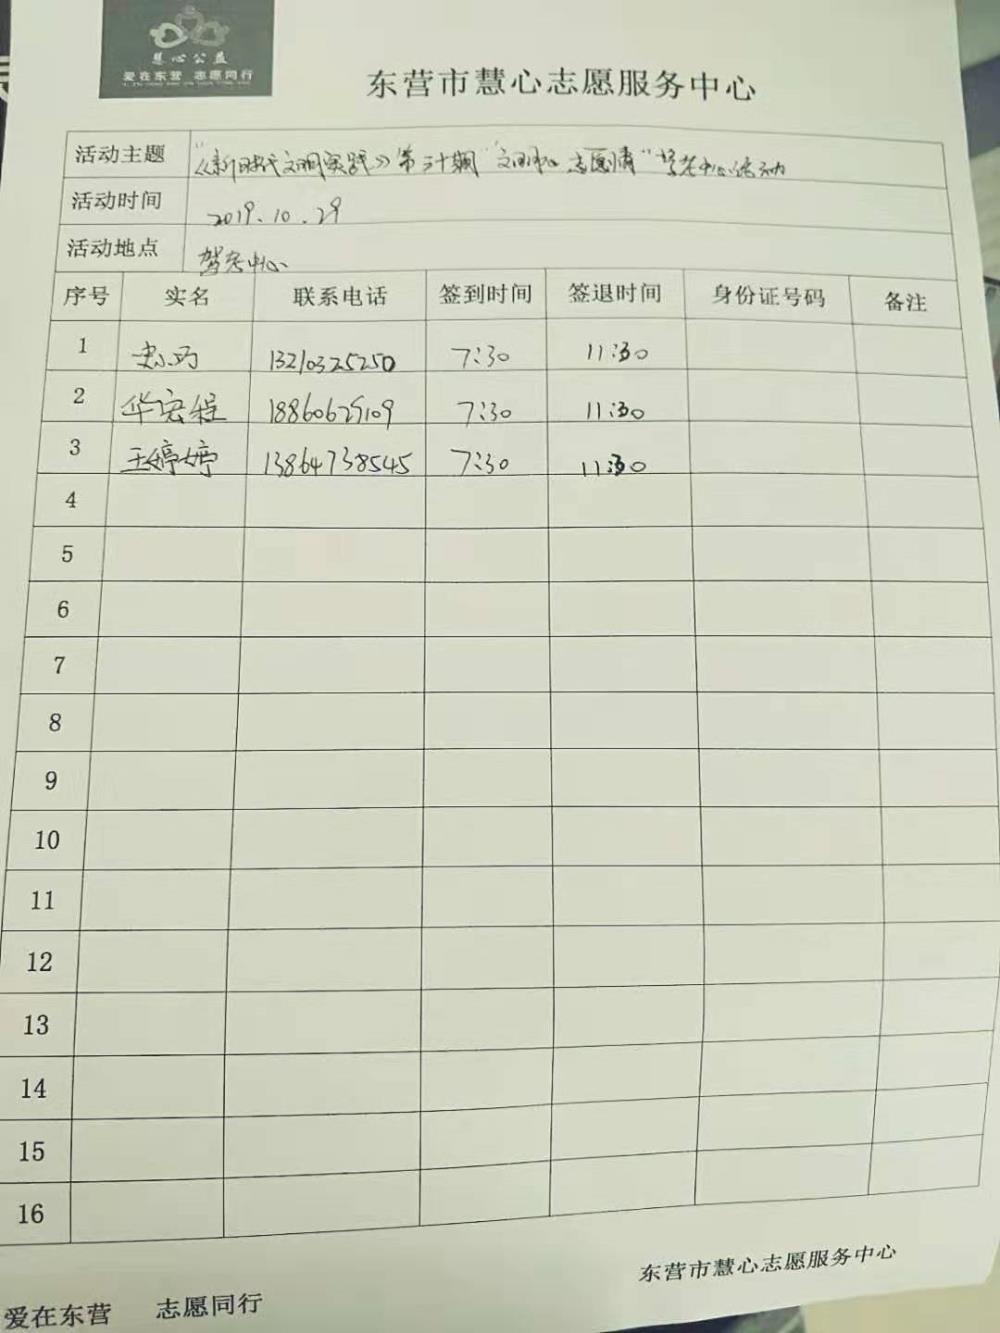 慧心公益
爱在东营 志愿同行
东营市慧心志愿服务中心
活动主题 "《新时代文明实践》第三十期"文明心 志愿情"驾考中心活动
活动时间 2019.10.29
活动地点 驾考中心
序号 实名 联系电话 签到时间 签退时间 身份证号码 备注
1 13210325250 7:30 11:30
2 华宏程 18860625109 7:30 11:30
3 王婷婷 13864738545 7:30 11:30
4
5
6
7
8
9
10
11
12
13
14
15
16
东营市慧心志愿服务中心
爱在东营 志愿同行